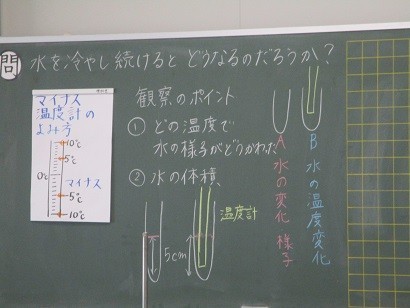 問 水を冷やし続けると どうなるのだろうか?
マイナス
温度計の
よみ方
10℃
5℃
0℃
マイナス
5℃
10℃
観察のポイント
① どの温度で
水の様子がどうかわった
② 水の体積
5cm
温度計
A 水の変化 様子
B 水の温度変化